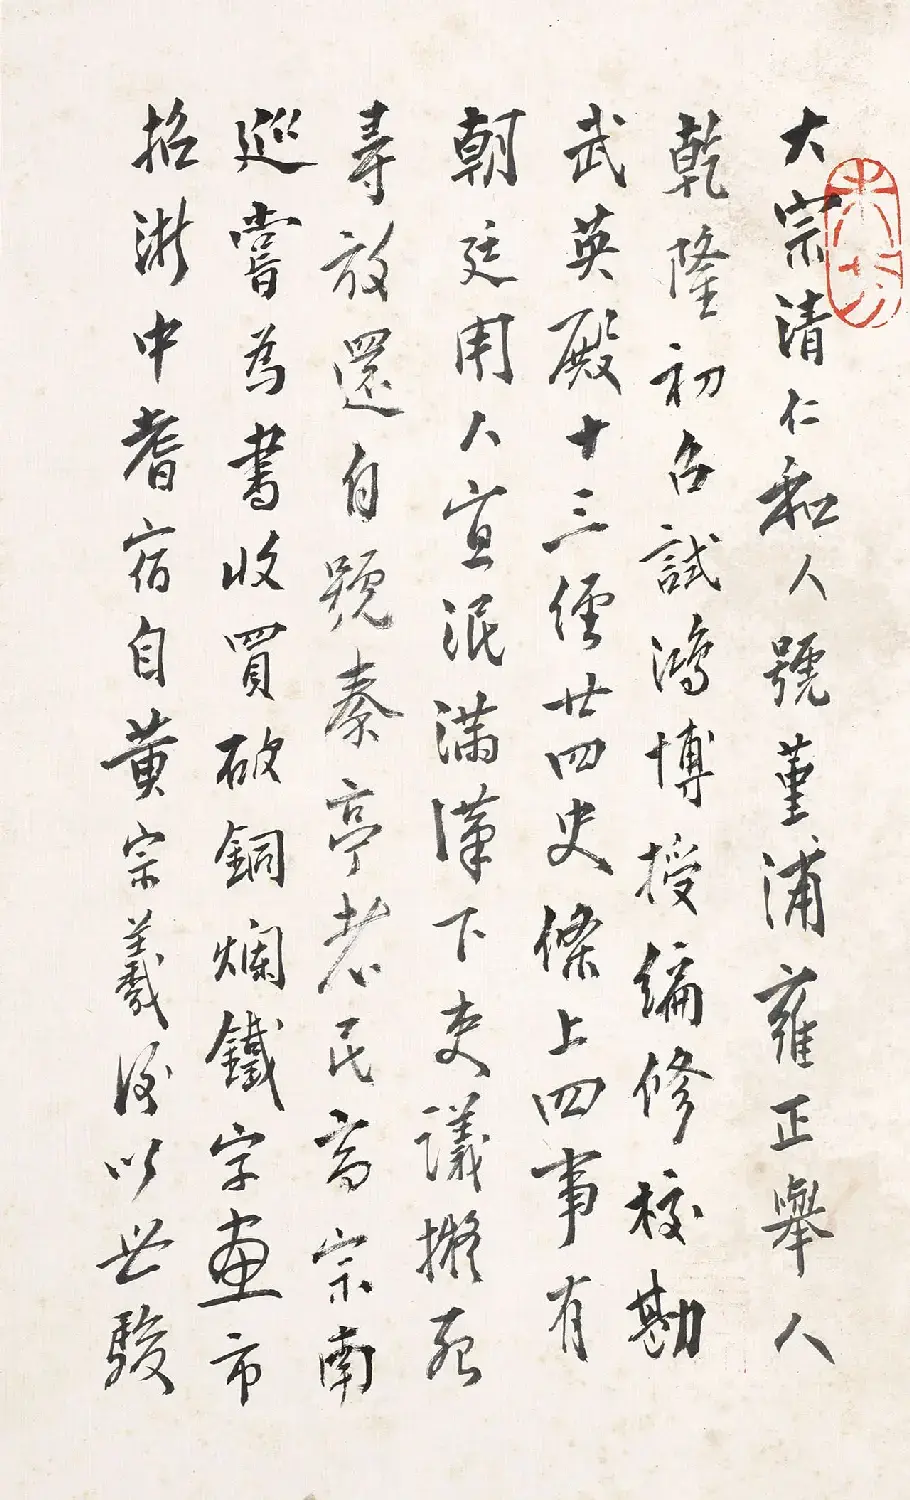 大宗清仁和人號菫浦雍正舉人
乾隆初召試鴻博授編修校勘
武英殿十三經廿四史條上四事有
朝廷用人宜泯滿漢下吏議擬死
尋放還自號秦亭老民高宗南
巡嘗為書收買破銅爛鐵字畫市
招浙中耆宿自黃宗羲後以世駿